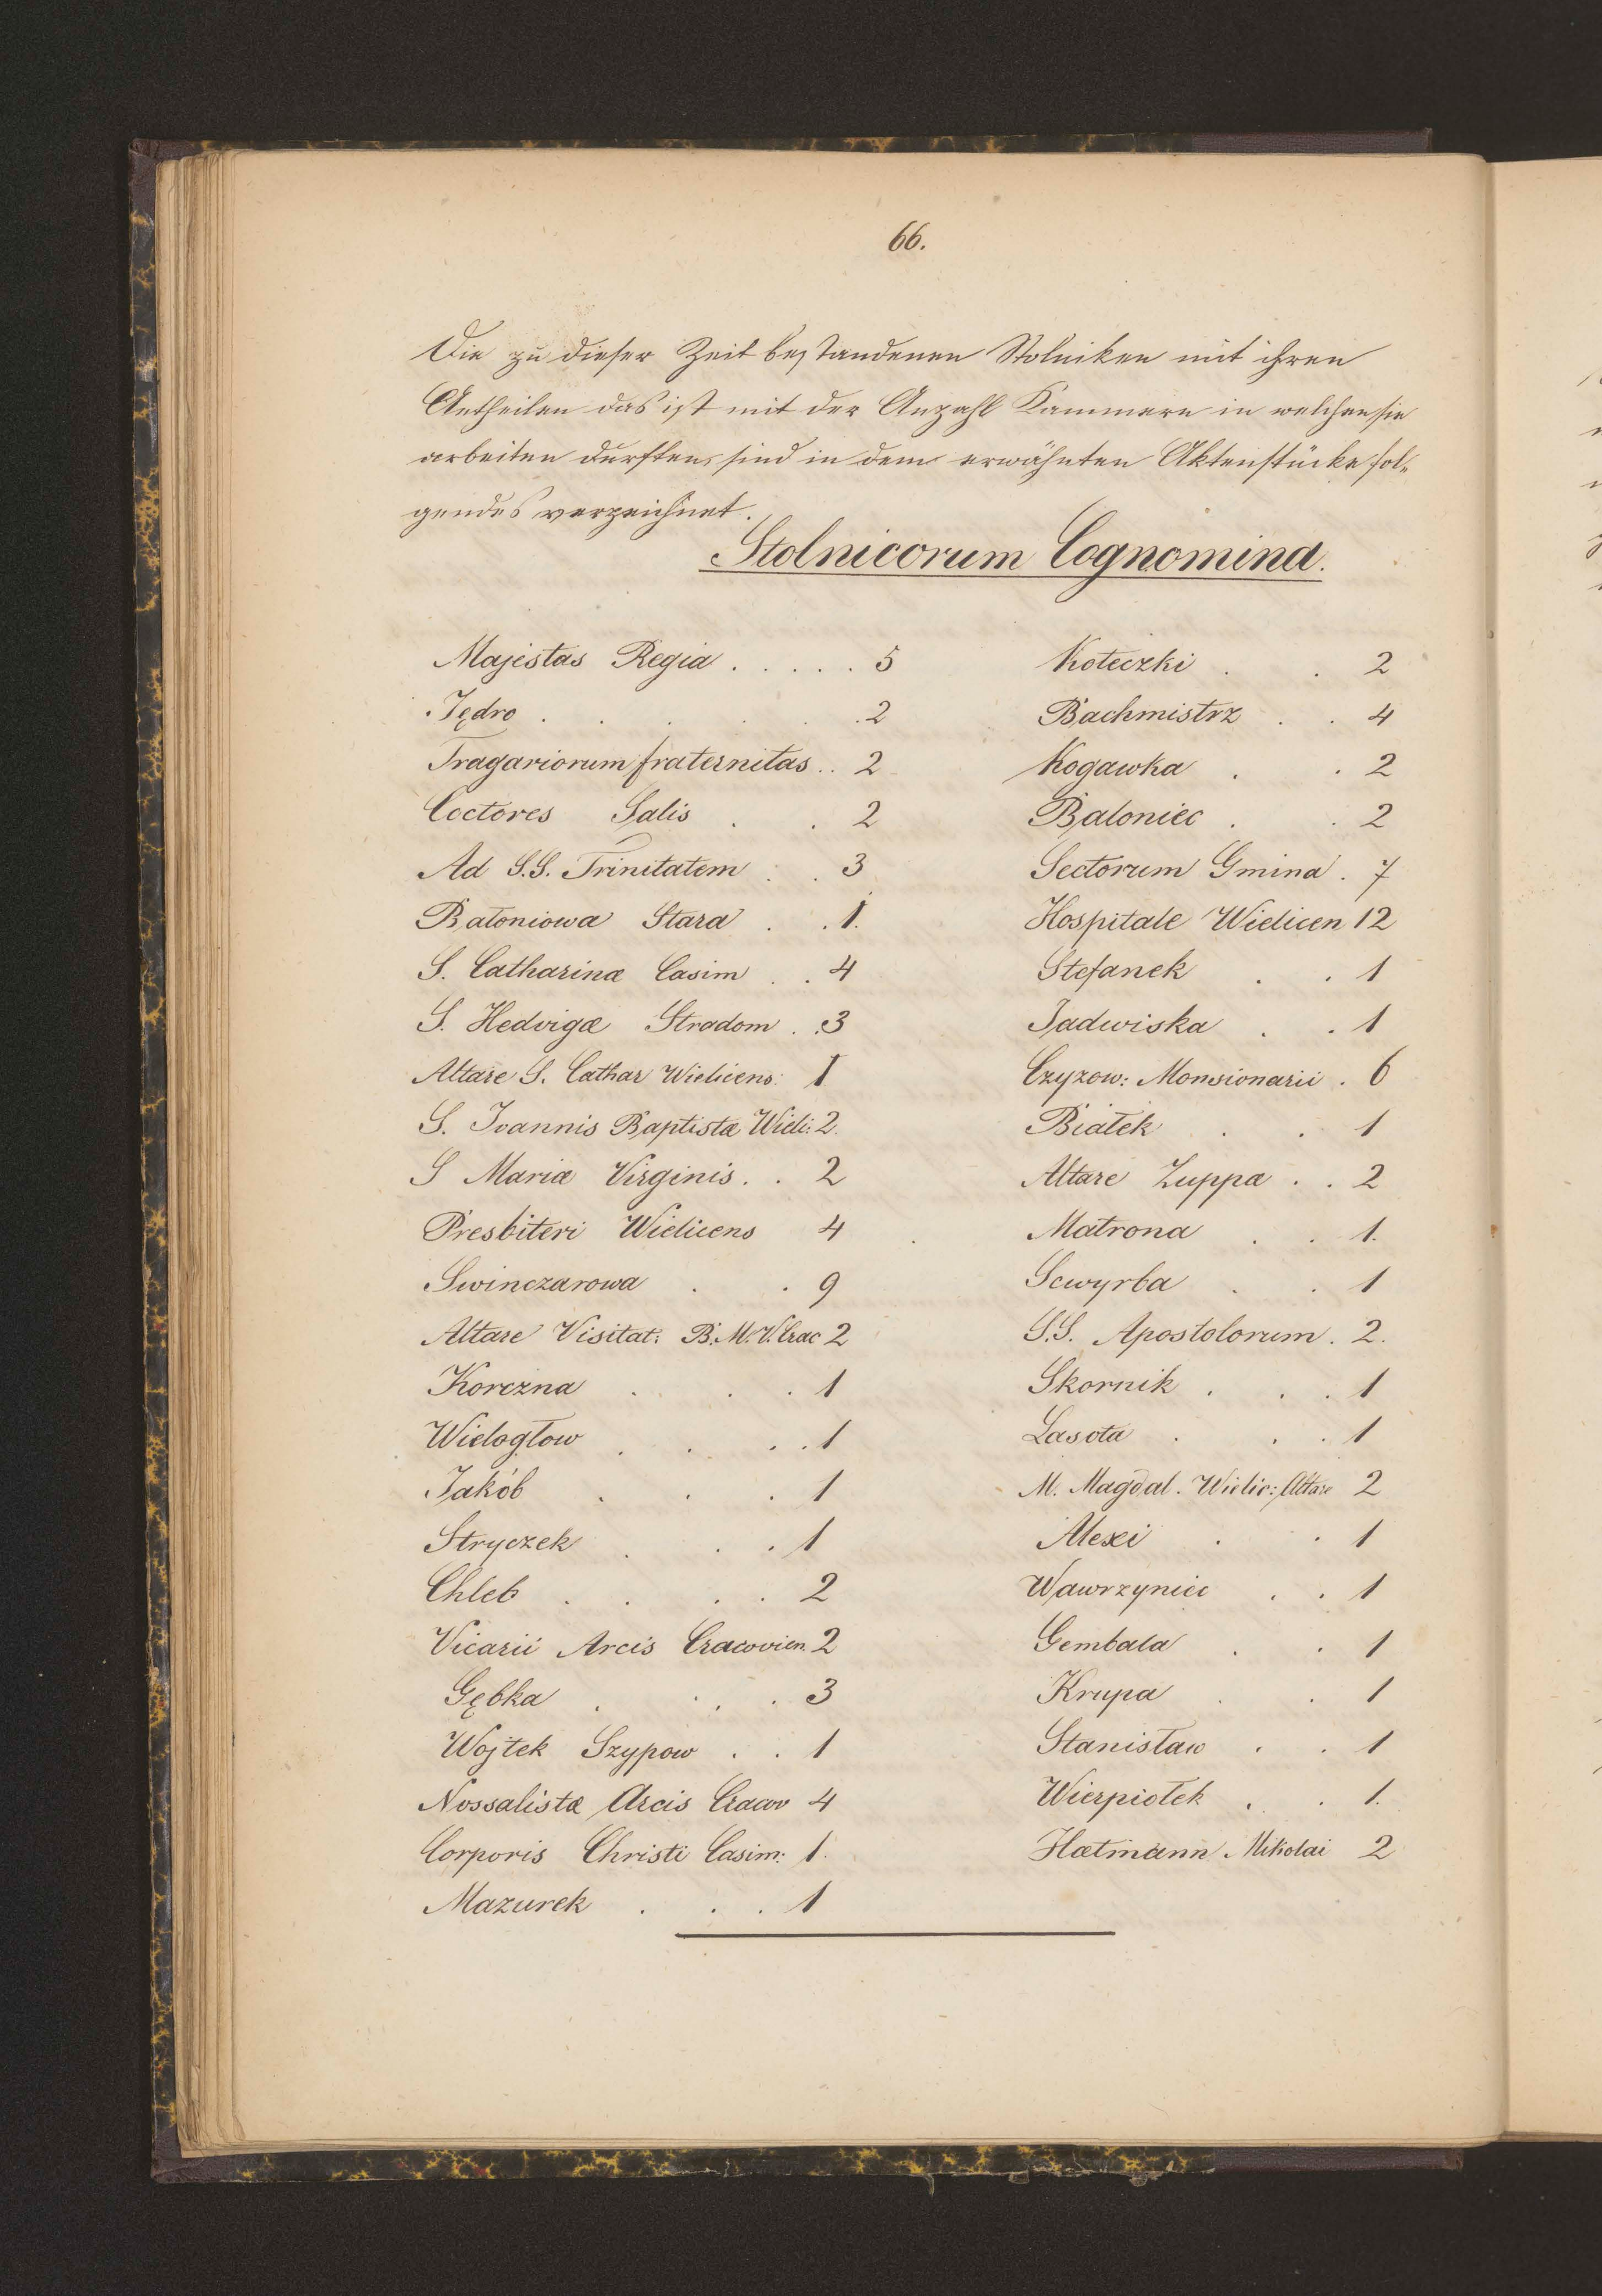 66.
Die zu dieser Zeit bestandenen Stolniken mit ihren
Antheilen das ist mit der Anzahl Kammern in welchen sie
arbeiten durften, sind in dem erwähnten Aktenstücke fol-
gendes verzeichnet.
Stolnicorum Cognomina.
Majestas Regia . . . . . 5
Jędro . . . . . . 2
Tragariorum fraternitas . . 2
Coctores Salis . . 2
Ad S.S. Trinitatem . . 3
Batoniowa Stara . . 1.
S. Catharinæ Casim . . 4
S. Hedvigæ Stradom . . 3
Altare S. Cathar Wielicens: 1
S. Joannis Baptistæ Wieli: 2.
S Mariæ Virginis . . 2
Presbiteri Wielicens 4
Swinczarowa . . 9
Altare Visitat: B. M. V. Crac 2
Korczna . . . 1
Wielogłow . . . . 1
Jakób . . . 1
Stryczek . . . 1
Chleb . . . . 2
Vicarii Arcis Cracovien. 2
Gębka . . . . 3
Wojtek Szypow . . 1
Nossalistæ Arcis Cracov 4
Corporis Christi Casim: 1.
Mazurek . . . 1
Koteczki . . 2
Bachmistrz . . 4
Kogawka . . 2
Baloniec . . 2
Sectorum Gmina . 7
Hospitale Wielicen 12
Stefanek . . 1
Jadwiska . . 1
Czyzow: Monsionarii . 6
Białek . . 1
Altare Zuppæ . . 2
Matrona . . 1.
Scwyrba . . 1
S.S. Apostolorum . 2.
Skornik . . . 1
Lasota . . . 1
M. Magdal. Wielic: Altare 2
Alexi . . 1
Wawrzyniec . . 1
Gembala . . 1
Krupa . . 1
Stanisław . . 1
Wierpiołek . . 1.
Hætmann Mikolai 2